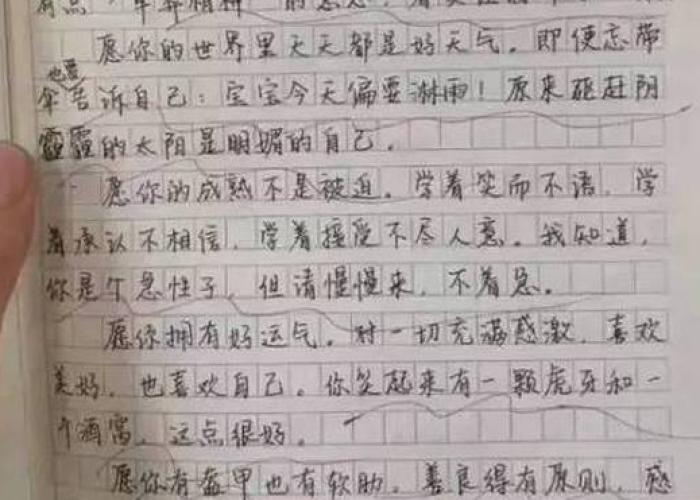 愿你的世界里天天都是好天气。即便忘带
也要
伞告诉自己：宝宝今天偏要淋雨！原来驱赶阴
霾的太阳是明媚的自己。
愿你的成熟不是被迫。学着笑而不语，学
着承认不相信，学着接受不尽人意。我知道，
你是个急性子，但请慢慢来，不着急。
愿你拥有好运气。对一切充满感激，喜欢
美好，也喜欢自己。你笑起来有一颗虎牙和一
个酒窝，这点很好。
愿你有盔甲也有软肋。善良得有原则，感